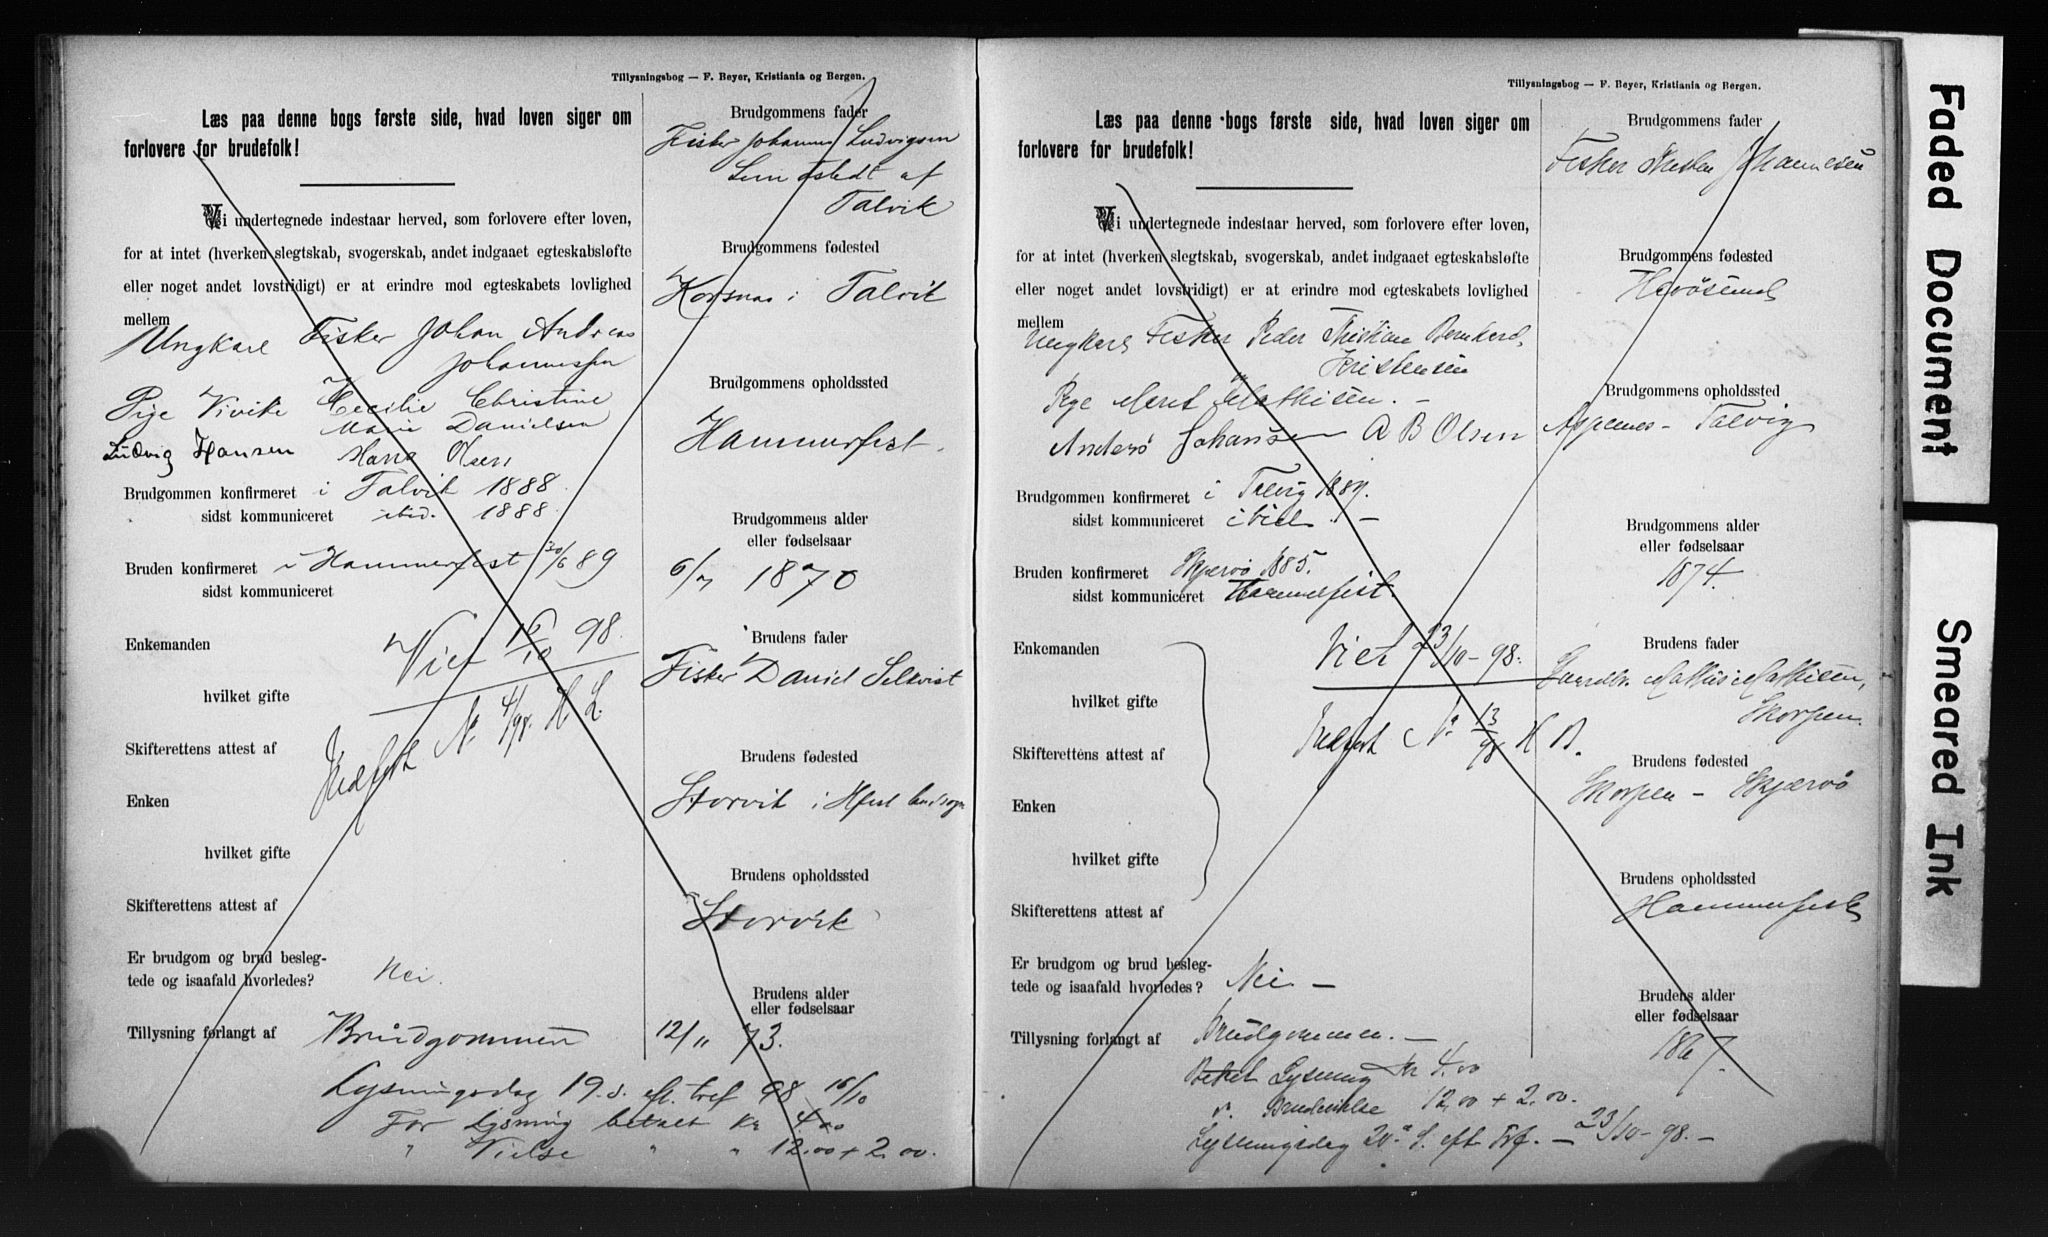 Tillysningsbog — F. Beyer, Kristiania og Bergen.
Læs paa denne bogs første side, hvad loven siger om
forlovere for brudefolk!
Vi undertegnede indestaar herved, som forlovere efter loven,
for at intet (hverken slegtskab, svogerskab, andet indgaaet egteskabsløfte
eller noget andet lovstridigt) er at erindre mod egteskabets lovlighed
mellem
Ungkarl Fisker Johan Andreas
Johannessen
Pige Vivike Cecilie Christine
Marie Danielsen
Ludvig Hansen Hans Olsen
Brudgommen konfirmeret i Talvik 1888.
sidst kommuniceret ibid. 1888.
Bruden konfirmeret i Hammerfest 30/6 89
sidst kommuniceret
Enkemanden
Viet 16/10 98.
hvilket gifte
Indført No 4/98. H. L.
Skifterettens attest af
Enken
hvilket gifte
Skifterettens attest af
Er brudgom og brud besleg-
tede og isaafald hvorledes? Nei.
Tillysning forlangt af Brudgommen
Lysningsdag 19. s. eft. tref 98 16/10
For Lysning betalt Kr 4.00
" Vielse " " 12.00 + 2.00.
Brudgommens fader
Fisker Johannes Ludvigsen
af
Talvik
Brudgommens fødested
Korsnes i Talvik
Brudgommens opholdssted
Hammerfest.
Brudgommens alder
eller fødselsaar
6/7 1870
Brudens fader
Fisker Daniel Selkvist
Brudens fødested
Storvik i Hfest landsogn
Brudens opholdssted
Storvik
Brudens alder
eller fødselsaar
12/11 73.
Tillysningsbog — F. Beyer, Kristiania og Bergen.
Læs paa denne bogs første side, hvad loven siger om
forlovere for brudefolk!
Vi undertegnede indestaar herved, som forlovere efter loven,
for at intet (hverken slegtskab, svogerskab, andet indgaaet egteskabsløfte
eller noget andet lovstridigt) er at erindre mod egteskabets lovlighed
mellem
Ungkarl Fisker Peder Kristian Bernhard
Kristensen
og
Pige Maret Mathisen. -
Anders Johansen A B Olsen
Brudgommen konfirmeret i Talvig 1889.
sidst kommuniceret ibid. -
Bruden konfirmeret Skjærvø 1885.
sidst kommuniceret Hammerfest.
Enkemanden
Viet 23/10-98.
hvilket gifte
Indført No 13/98 H B.
Skifterettens attest af
Enken
hvilket gifte
Skifterettens attest af
Er brudgom og brud besleg-
tede og isaafald hvorledes? Nei. -
Tillysning forlangt af Brudgommen. -
Betalt Lysning Kr 4.00
Brudevielse 12.00 + 2.00.
Lysningsdag 20de S. eft Tref. - 23/10-98. -
Brudgommens fader
Fisker Kristen Johannesen
Brudgommens fødested
Brudgommens opholdssted
Aspenes - Talvig
Brudgommens alder
eller fødselsaar
1874.
Brudens fader
Mathis Mathisen,
Skorpen.
Brudens fødested
Skorpen - Skjærvø
Brudens opholdssted
Hammerfest
Brudens alder
eller fødselsaar
1867.
Faded Document
Smeared Ink